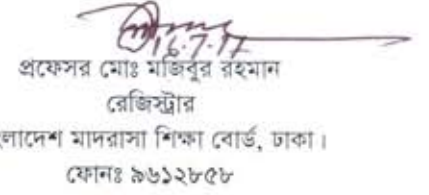 16.7.17
প্রফেসর মোঃ মজিবুর রহমান
রেজিস্ট্রার
লাদেশ মাদরাসা শিক্ষা বোর্ড, ঢাকা।
ফোনঃ ৯৬১২৮৫৮